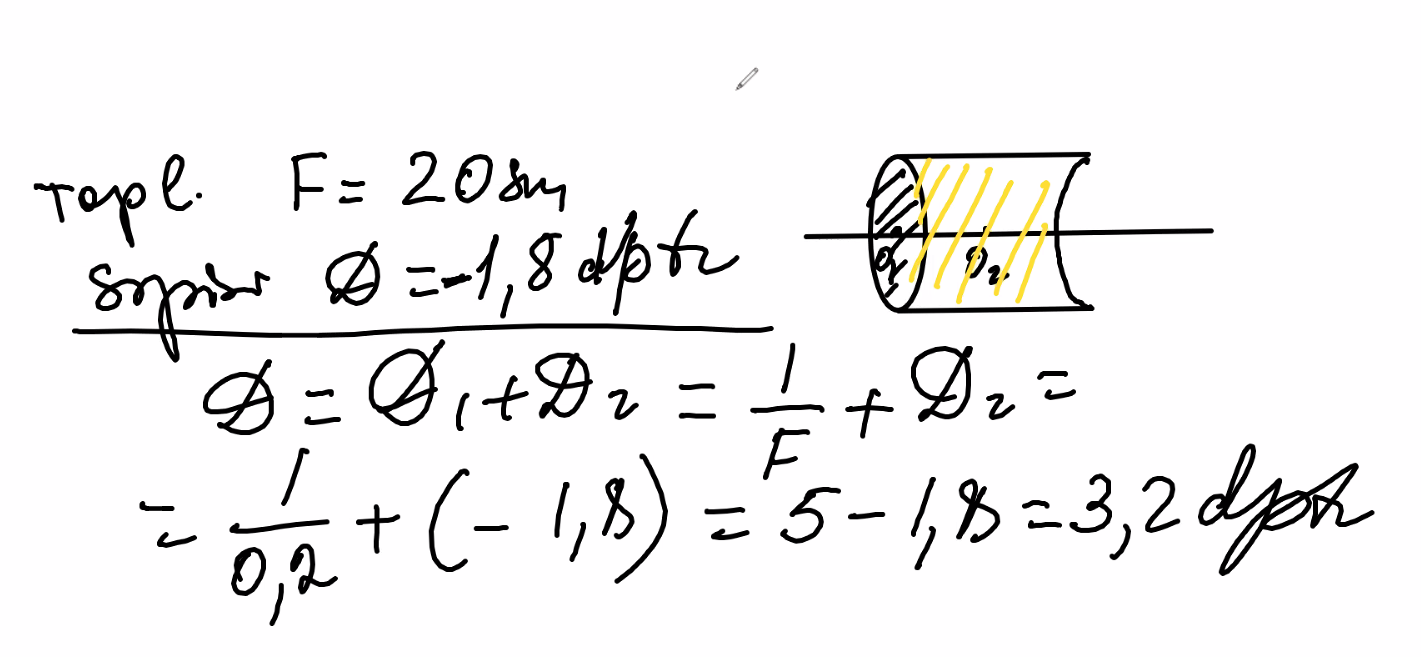 Topl. F = 20 sm,
D = -1,8 dptr
D₁ D₂
D = D₁ + D₂ = 1/F + D₂ =
= 1/0,2 + (- 1,8) = 5 - 1,8 = 3,2 dptr